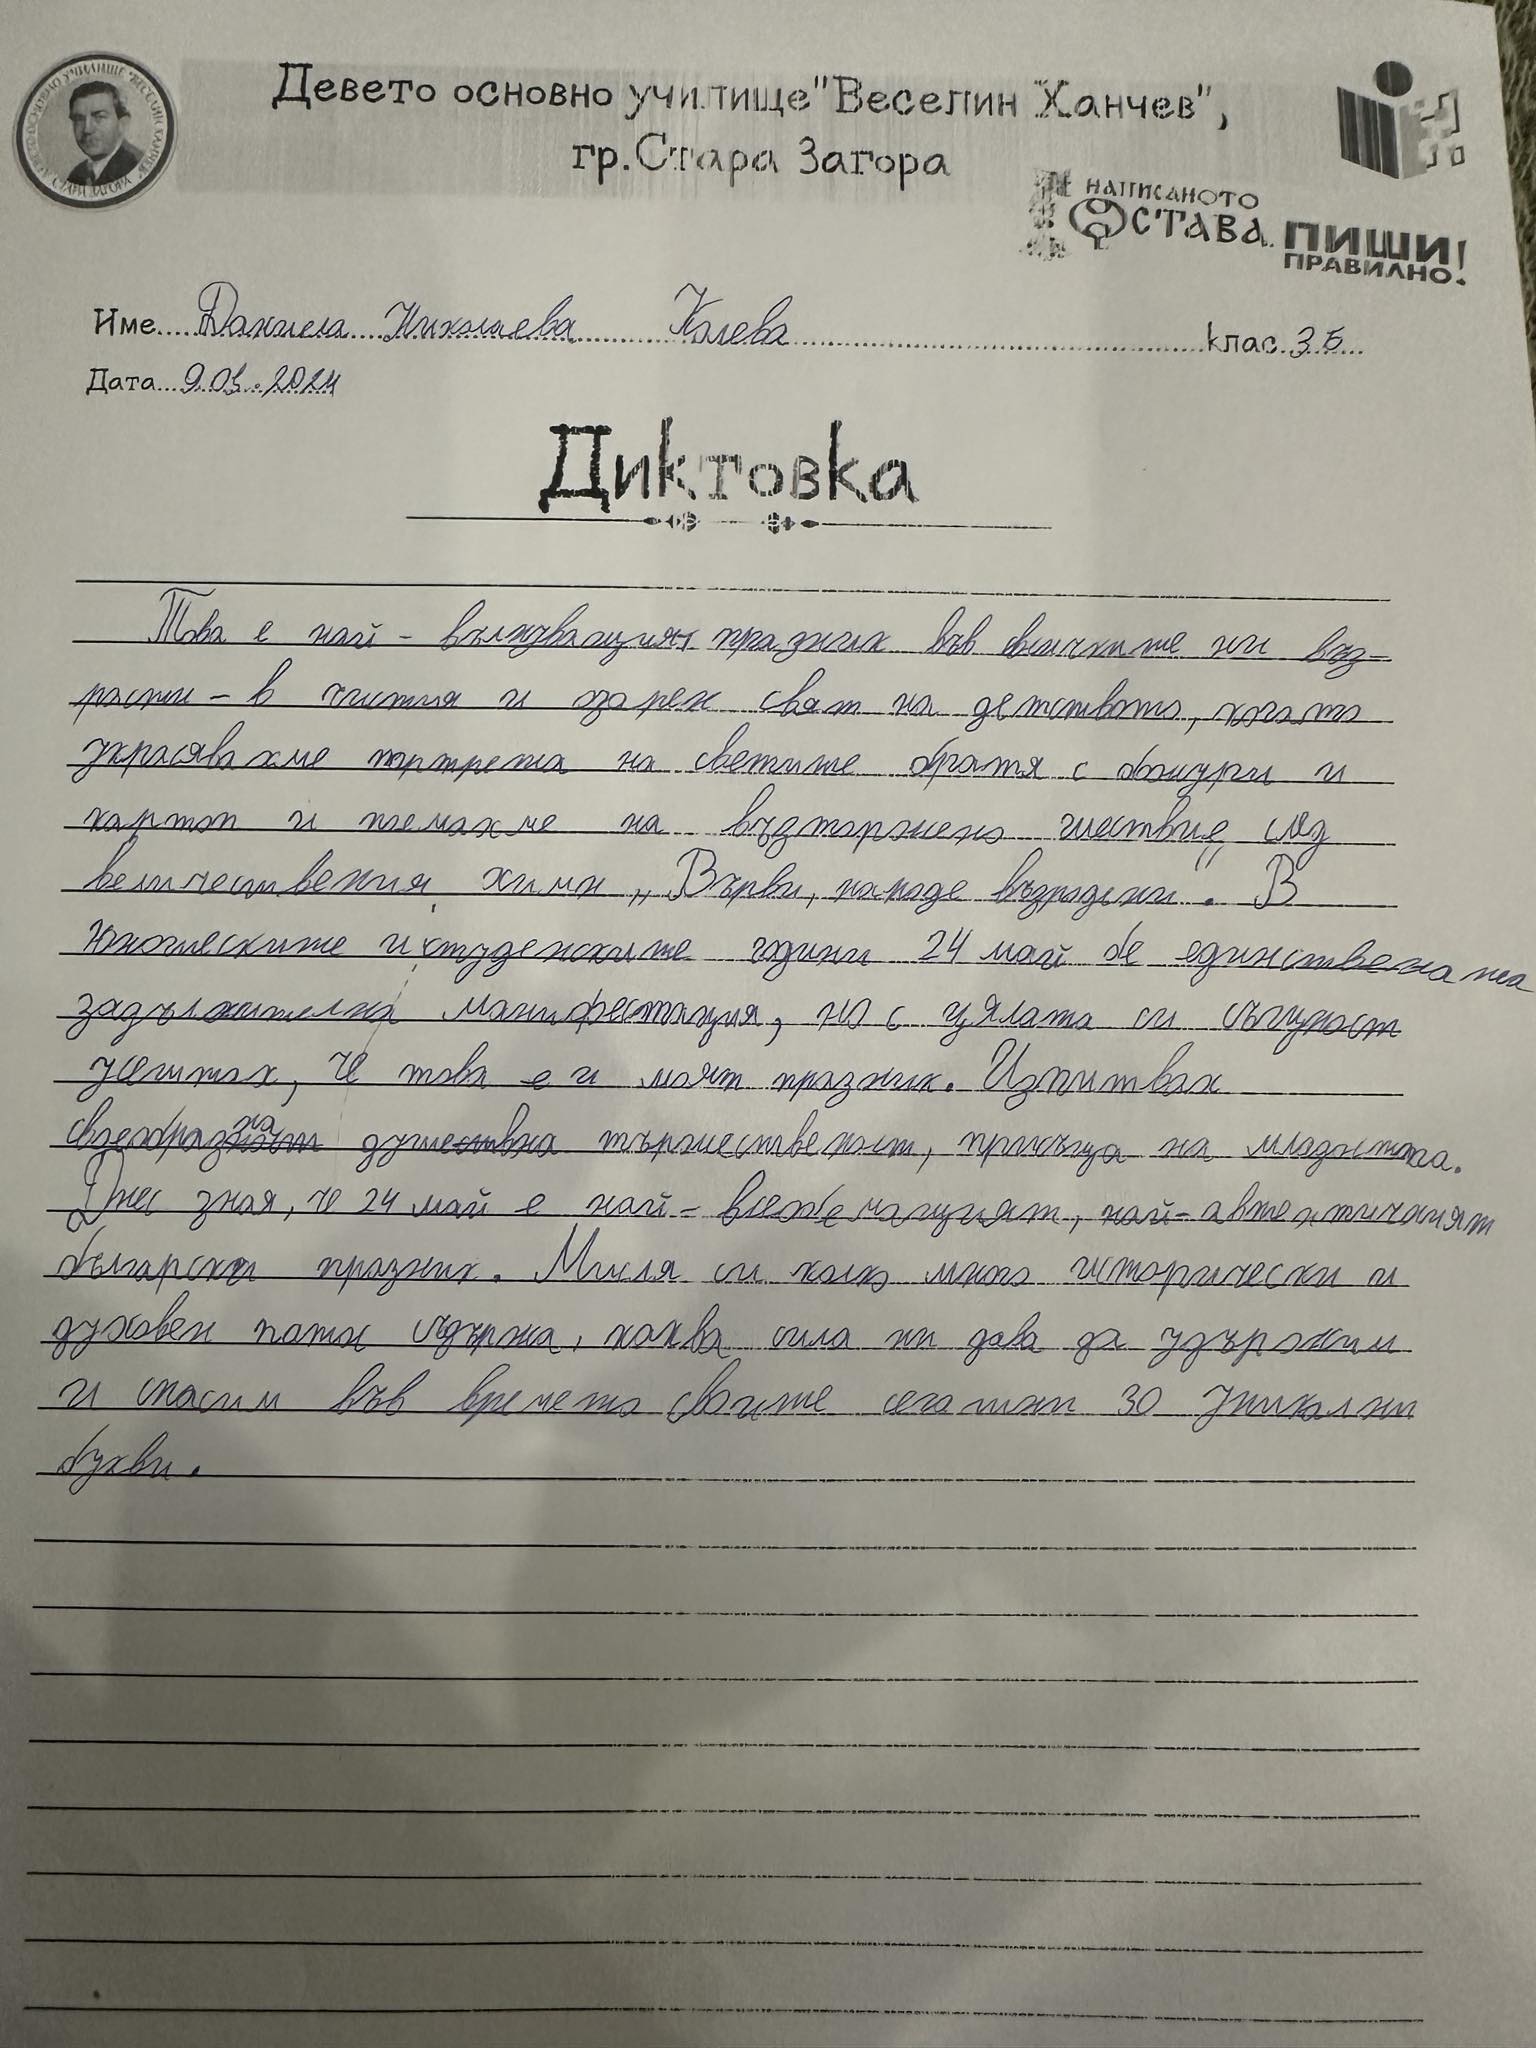 Девето основно училище "Веселин Ханчев",
гр.Стара Загора
НАПИСАНОТО
ОСТАВА. ПИШИ
ПРАВИЛНО!
Име Даниела Николаева Колева клас 3Б
Дата 9.05.2024
Диктовка
Това е най - вълнуващият празник във всичките ни въз-
расти - в чистия и озарен свят на детството, когато
украсявахме портрета на светите братя с божури и
картон и поемахме на възторжено шествие след
величествения химн „Върви, народе възродени". В
юношеските и студенските години 24 май бе единствената
задължителна манифестация, но с цялата си същност
усещах, че това е и моят празник. Изпитвах
своеобразна душевна тържественост, присъща на младостта.
Днес зная, че 24 май е най - всеобемащият, най - автентичният
български празник. Мисля си колко много исторически и
духовен патос съдържа, каква сила ни дава да удържим
и спасим във времето своите сегашни 30 уникални
букви.